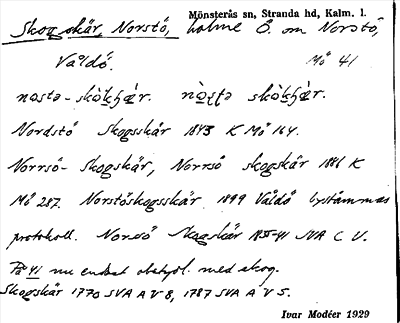 Mönsterås sn, Stranda hd, Kalm. l.
Skogskär, Norstö, holme Ö. om Norstö,
Valdö. Mö 41
nɷstə-skɷ̀kʃǽr. skɷ̀kʃǽr.
Nordstö Skogsskär 1843 K Mö 164.
Norrsö- Skogskär, Norrsö skogskär 1881 K
Mö 287. Norstöskogsskär 1899 Våldö bystämmas
protokoll. Norrsö Skogskär 1835-41 SVA C V.
På 41 nu endast obetydl. med skog.
Skogskär 1770 SVA A V 8, 1787 SVA A V 5.
Ivar Modéer 1929